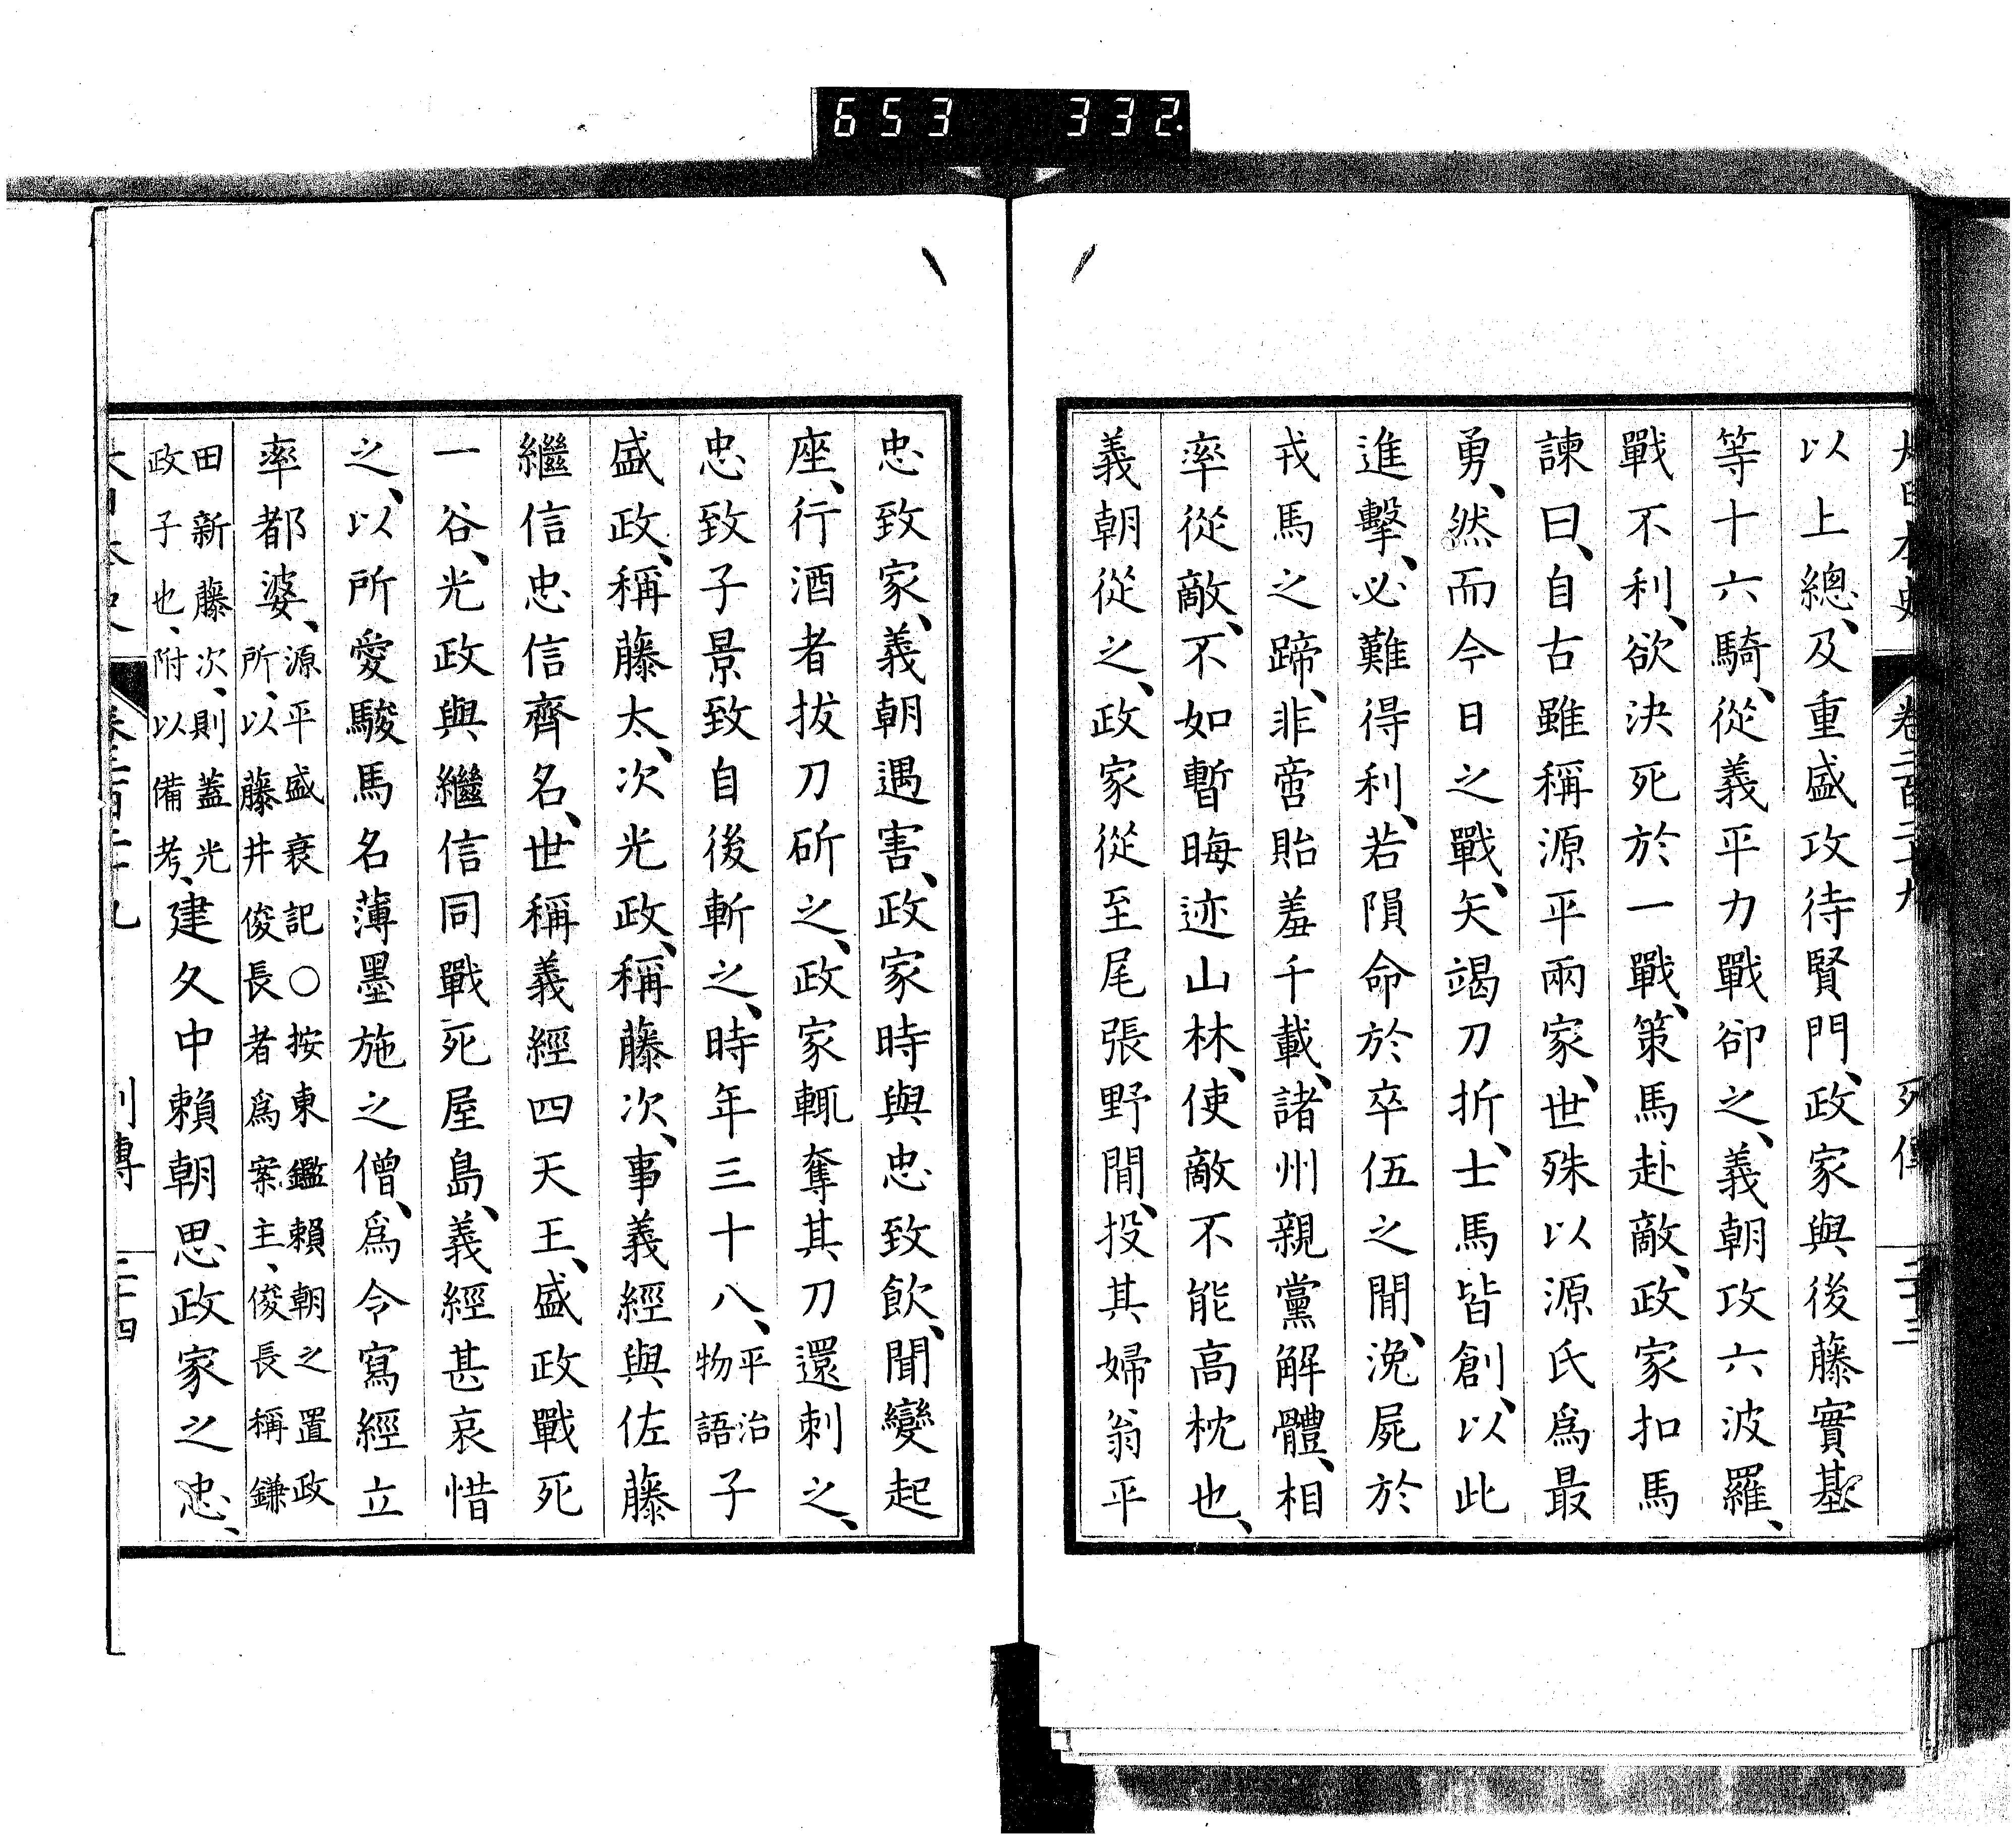 653 332
大日本史 卷二百二十九 列傳 二十三
以上總、及重盛攻待賢門、政家與後藤實基
等十六騎、從義平力戰卻之、義朝攻六波羅、
戰不利、欲決死於一戰、策馬赴敵、政家扣馬
諫曰、自古雖稱源平兩家、世殊以源氏爲最
勇、然而今日之戰、矢竭刀折、士馬皆創、以此
進擊、必難得利、若隕命於卒伍之閒、渙屍於
戎馬之蹄、非啻貽羞千載、諸州親黨解體、相
率從敵、不如暫晦迹山林、使敵不能高枕也、
義朝從之、政家從至尾張野閒、投其婦翁平
忠致家、義朝遇害、政家時與忠致飮、聞變起
座、行酒者拔刀斫之、政家輒奪其刀還刺之、
忠致子景致自後斬之、時年三十八、平治
物語子
盛政、稱藤太、次光政、稱藤次、事義經與佐藤
繼信忠信齊名、世稱義經四天王、盛政戰死
一谷、光政與繼信同戰死屋島、義經甚哀惜
之、以所愛駿馬名薄墨施之僧、爲令寫經立
率都婆、源平盛衰記○按東鑑賴朝之置政
所、以藤井俊長者爲案主、俊長稱鎌
田新藤次、則蓋光
政子也、附以備考、建久中賴朝思政家之忠、
大日本史 卷二百二十九 列傳 二十四